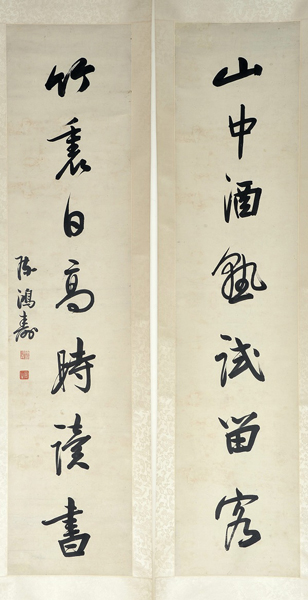 山中酒熟試留客
竹裏日高時讀書
陳鴻壽